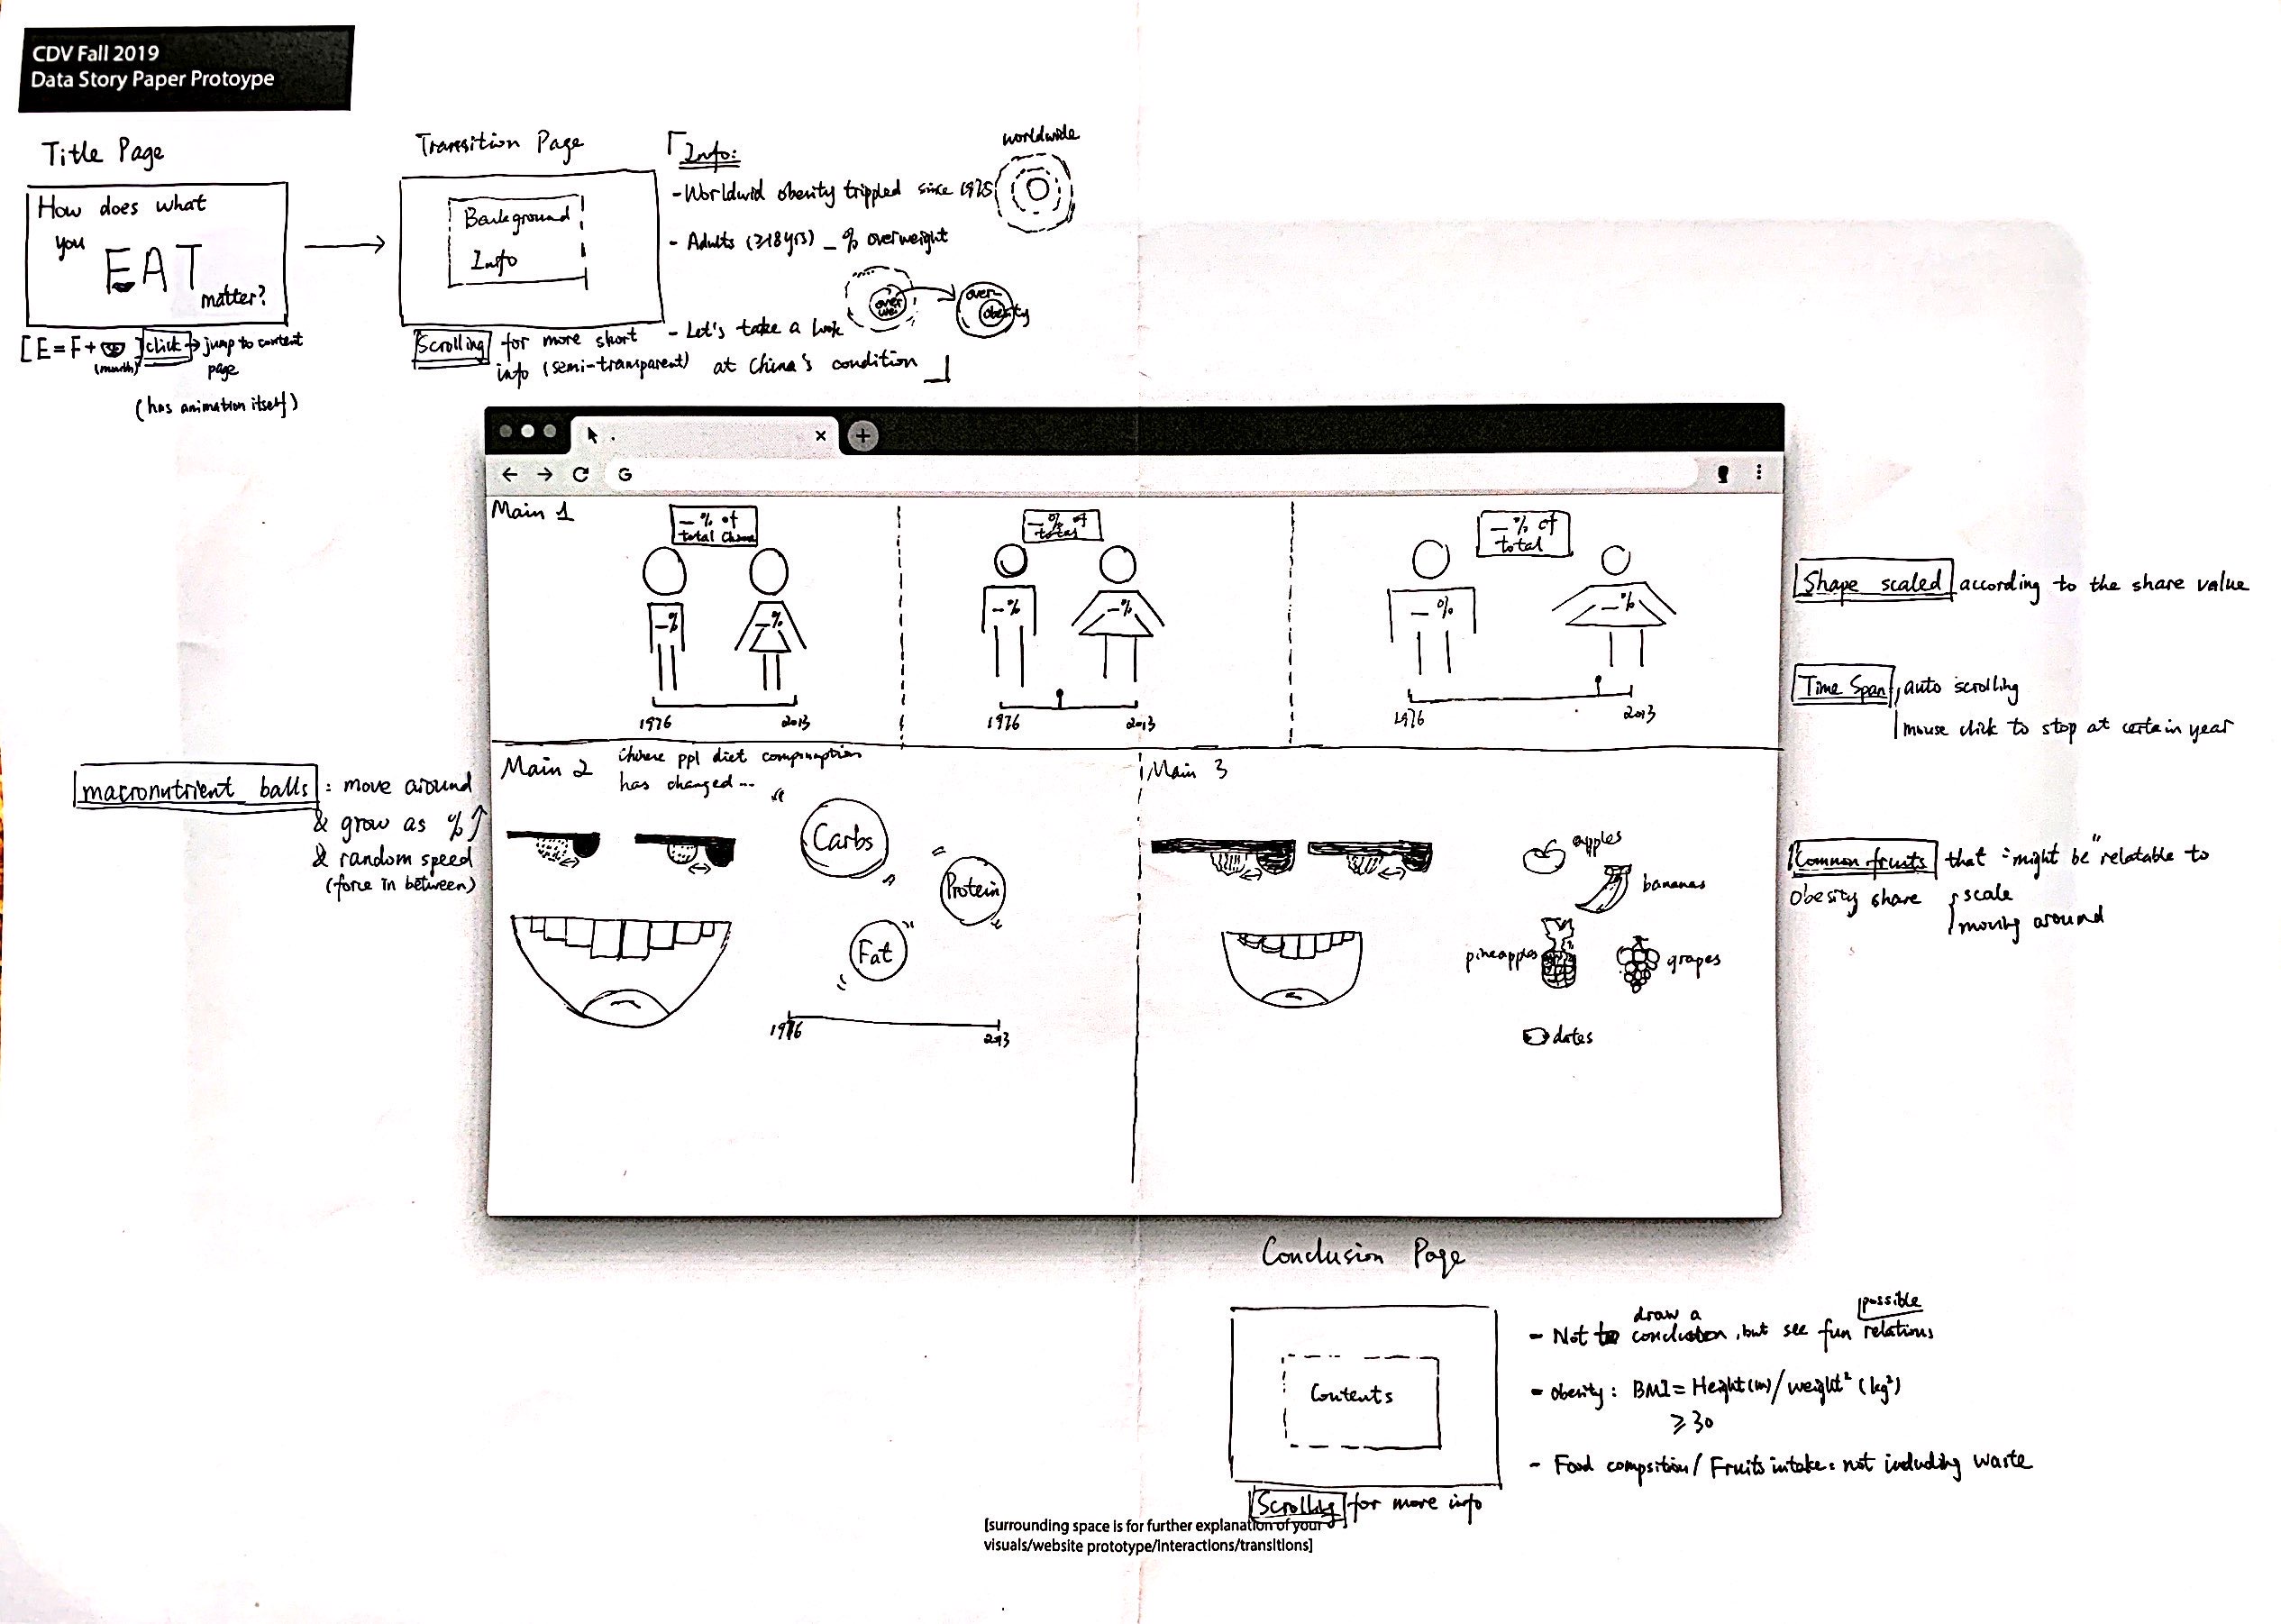 CDV Fall 2019
Data Story Paper Protoype
Title Page
How does what
you
EAT
matter?
[E=F+
(mouth)
] click → jump to content
page
(has animation itself)
Transition Page
Background
Info
Scrolling for more short
info (semi-transparent)
Info:
- Worldwid obesity trippled since 1975
worldwide
- Adults (≥18yrs) _ % overweight
over
wei
over-
obesity
- Let's take a look
at China's condition
Main 1
_% of
total China
_%
_%
1976
2013
_% of
total
_%
_%
1976
2013
_% of
total
_%
_%
1976
2013
Shape scaled according to the share value
Time Span, auto scrolling
mouse click to stop at certain year
Main 2
Chinese ppl diet compumption
has changed...
Carbs
Protein
Fat
1976
2013
macronutrient balls : move around
& grow as % ↑
& random speed
(force in between)
Main 3
apples
bananas
pineapples
grapes
dates
Common fruits that "might be" relatable to
obesity share
scale
moving around
Conclusion Page
Contents
Scrolling for more info
- Not draw a conclusion, but see fun possible relations
- obesity: BMI = Height(m)/weight² (kg²)
≥30
- Food compsition/ Fruits intake: not including waste
[surrounding space is for further explanation of your
visuals/website prototype/interactions/transitions]